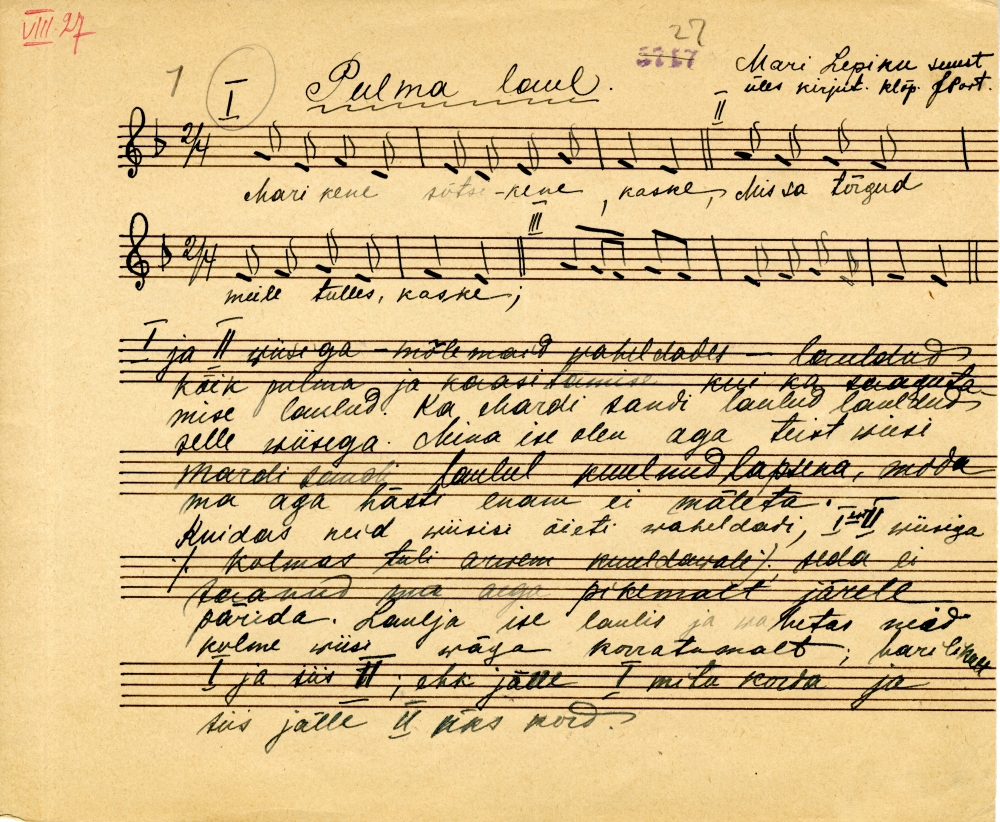 VIII 27
27
5757
1
I
Pulma laul.
Mari Lepiku suust
üles kirjut. klöp.
II
Mari kene sõtse-kene, kaske, Mis sa tõrgud
III
meile tulles, kaske;
I ja II wiisiga – mõlemaid waheldades – lauldud
kõik pulma ja kaasitamise kui ka saaguta
mise laulud. Ka Mardi sandi laulud lauldud
selle wiisega. Mina ise olen aga teist wiisi
Mardi sandi laulul kuulnud lapsena, mida
ma aga hästi enam ei mäleta.
Kuidas neid wiisisi õieti waheldadi, I ja II wiisiga
/. kolmas tuli arwem kuuldawale ./. seda ei
saanud ma aega pikemalt järele
pärida. Laulja ise laulis ja wahetas neid
kolme wiisi wäga korratumalt; harilikult
I ja siis II; ehk jälle I mitu korda ja
siis jälle II üks kord.